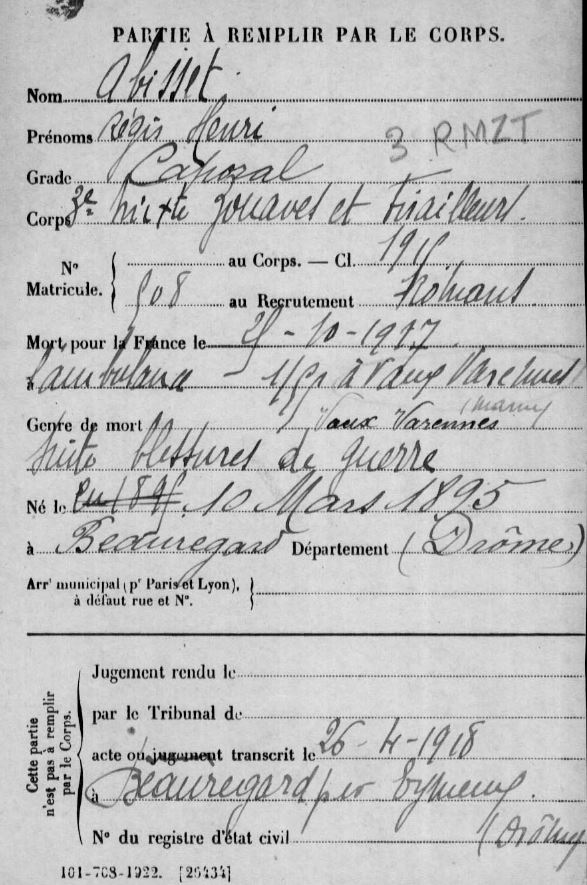 PARTIE À REMPLIR PAR LE CORPS.
Nom Abisset
Prénoms Régis Henri
3 RMZT
Grade Caporal
Corps 3e mixte zouaves et tirailleurs.
N° Matricule. { au Corps. — Cl. 1915
508 au Recrutement Romans
Mort pour la France le 25-10-1917
à l'ambulance - à Vaux Varennes
(Marne)
Genre de mort Vaux Varennes
suite blessures de guerre
Né le en 1895 10 Mars 1895
à Beauregard Département (Drôme)
Arrt municipal (pr Paris et Lyon), à défaut rue et N°. }
Cette partie n'est pas à remplir par le Corps.
Jugement rendu le
par le Tribunal de
acte ou jugement transcrit le 26-4-1918
à Beauregard par Eymeux.
(Drôme)
N° du registre d'état civil
101-708-1922. [26434]